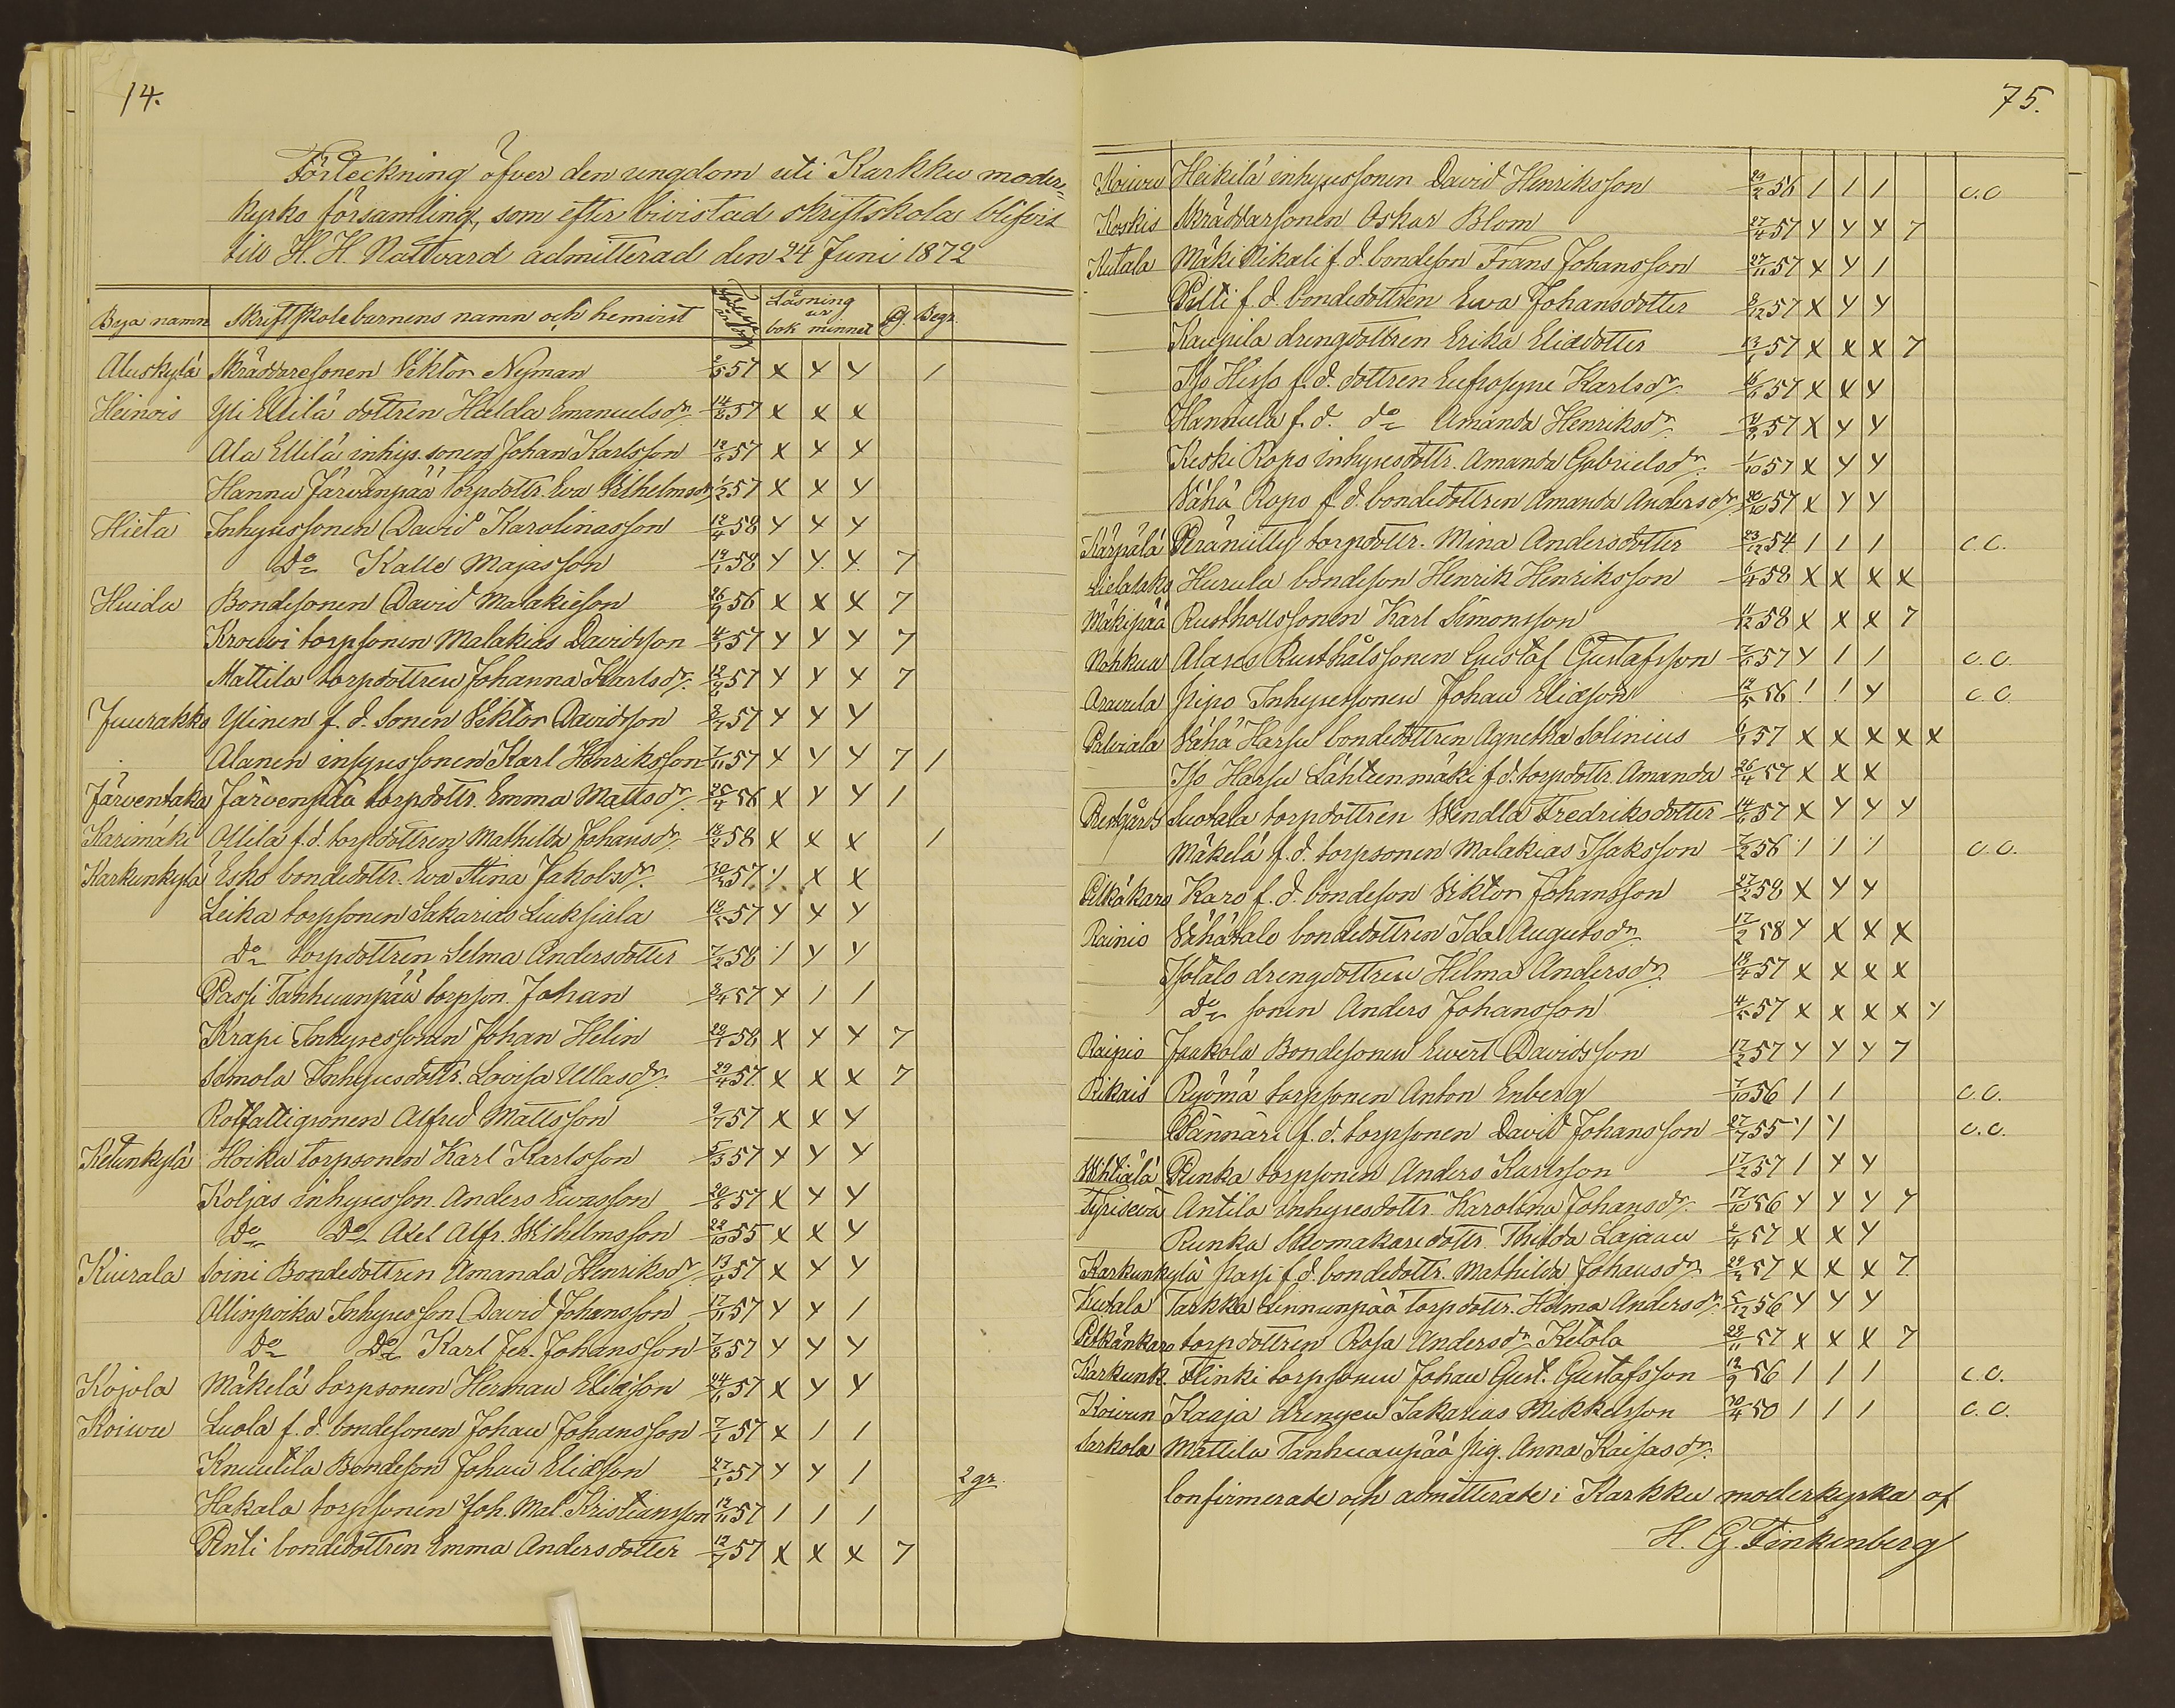 14.
Förteckning öfver den ungdom uti Karkku moder-
kyrko församling, som efter bivistad skriftskola blifvit
till H. H. Nattvard admitterad den 24 Juni 1872
Bya namn Skriftskolebarnens namn och hemvist Läsning ur bok minnet Begr.
Aluskylä Skräddaresonen Viktor Nyman 2/5 57 x y y 1
Heinois Yli Ellilä dottren Hulda Emanuelsdr 14/8 57 x x x
Ala Ellilä inhys. sonen Johan Karlsson 12/6 57 x y y
Hannu Järvänpää torpdottr. Eva Vilhelmsdr 1/2 57 x x y
Hieta Inhysessonen David Karolinasson 12/4 58 y y y
Do Kalle Majasson 19/1 58 y y y 7
Huida Bondesonen David Malakieson 26/9 56 x x x 7
Krouvi torpsonen Malakias Davidsson 4/1 57 y y y 7
Mattila torpdottren Johanna Karlsdr. 12/9 57 y y y 7
Juurakko Ylinen f. d. sonen Viktor Davidsson 8/7 57 y y y
Alanen inhysessonen Karl Henriksson 7/11 57 x y y 7 1
Järventaka Järvenpää torpdottr. Emma Mattsdr. 25/4 56 x y y 1
Karimäki Ollila f. d. torpdottren Mathilda Johansdr. 18/2 58 x x x 1
Karkunkylä Esko bondedottr. Eva Stina Jakobsdr. 57 1 x x
Leika torpsonen Sakarias Liuksiala 57 y x y
Do torpdottren Selma Andersdotter 7/2 58 1 y y
Passi Tanhuanpää torpson. Johan 2/4 57 y 1 1
Krapi Inhysessonen Johan Helin 58 x y y 7
Somola Inhysesdottr. Lovisa Ullasdr. 29/4 57 x x x 7
Rotfattigsonen Alfred Mattsson 9/7 57 x x y
Ketunkylä Hoika torpsonen Karl Karlsson 5/3 57 y y y
Koljas inhysesson. Anders Evasson 20/6 57 x y y
Do Do Axel Alfr. Vilhelmsson 22/10 55 x x y
Kiurala Soini Bondedottren Amanda Henriksdr 13/4 57 x y y
Ollinpoika Inhysesson David Johansson 17/11 57 y y 1
Do Do Karl Jer. Johansson 7/8 57 y y y
Kojola Mäkelä torpsonen Herman Eliasson 24/1 57 x y y
Koivu Luola f. d. bondesonen Johan Johansson 7/1 57 x 1 1
Knuutila Bondeson Johan Eliasson 27/1 57 y y 1 2 gr.
Hakala torpsonen Joh. Mal. Kristiansson 57 1 1 1
Anti bondedottren Emma Andersdotter 12/7 57 x x x 7
75.
Koivu Heikilä inhysessonen David Henriksson 29/2 56 1 1 1 c.c.
Koskis Skräddarsonen Oskar Blom 27/4 57 y y y 7
Kutala Mäki Nikali f. d. bondeson Frans Johansson 27/11 57 x y 1
Piilti f. d. bondedottren Eva Johansdotter 57 x y y
Kaupila drengdottren Erika Eliedotter 13/1 57 x x x 7
Iso Hisso f. d. dottren Eufrosyne Karlsdr. 57 x x y
Hannula f. d. do Amanda Henriksdr. 57 x y y
Keski Ropo inhysesdottr. Amanda Gabrielsdr. 1/10 57 x y y
Vähä Ropo f. d. bondedottren Amanda Andersdr. 57 x y y
Kärpälä Pränutty torpdottr. Mina Andersdotter 23/12 54 1 1 1 c.c.
Lielatsko Hurula bondeson Henrik Henriksson 58 x x x x
Mäkipää Rusthollssonen Karl Simonsson 11/12 58 x x x 7
Nohkua Alares Rusthålssonen Gustaf Gustafsson 57 y 1 1 c.c.
Aravula Pipo Inhysessonen Johan Eliasson 56 1 1 y c.c.
Palviala Vähä Harsu bondedottren Agnetha Solinius 57 x x x x x
Iso Harsu Lähteenmäki f. d. torpdottr. Amanda 26/4 57 x x x
Prestgård Suotala torpdottren Wendla Fredriksdotter 57 x y y y
Mäkelä f. d. torpsonen Malakias Isaksson 7/2 56 1 1 1 c.c.
Pitkäkaro Karo f. d. bondeson Viktor Johansson 27/2 58 x y y
Rainio Vähätalo bondedottren Ida Augustsdr. 17/2 58 y x x x
Isotalo drengdottren Hilma Andersdr. 18/4 57 x x x x
Do sonen Anders Johansson 57 x x x x y
Raipio Jaakola Bondesonen Evert Davidsson 17/2 57 y y y 7
Rikais Ryömä torpsonen Anton Enberg 7/10 56 1 1 c.c.
Pännäri f. d. torpsonen David Johansson 27/7 55 1 y c.c.
Vihtiälä Runka torpsonen Anders Karlsson 17/2 57 1 y y
Tyrisevä Antila inhysesdottr. Karolina Johansdr. 17/10 56 y y y y
Runka Skomakaredottr. Thilda Lajaau 57 x x y
Karkunkylä Passi f. d. bondedottr. Mathilda Johansdr. 57 x x x 7
Kutala Tarkka Linnunpää torpdottr. Hilma Andersdr. 5/12 56 y y y
Pitkänkaro torpdottren Rosa Andersdr. Ketola 28/11 57 x x x 7
Karkunk. Flinki torpsonen Johan Gust. Gustafsson 12/9 56 1 1 1 c.c.
Koivun Kaaja drengen Sakarias Mikkelsson 50 1 1 1 c.c.
Sarkola Mattila Tanhuanpää pig. Anna Kaisasdr.
Confirmerade och admitterade i Karkku moderkyrka af
H. G. Finkenberg